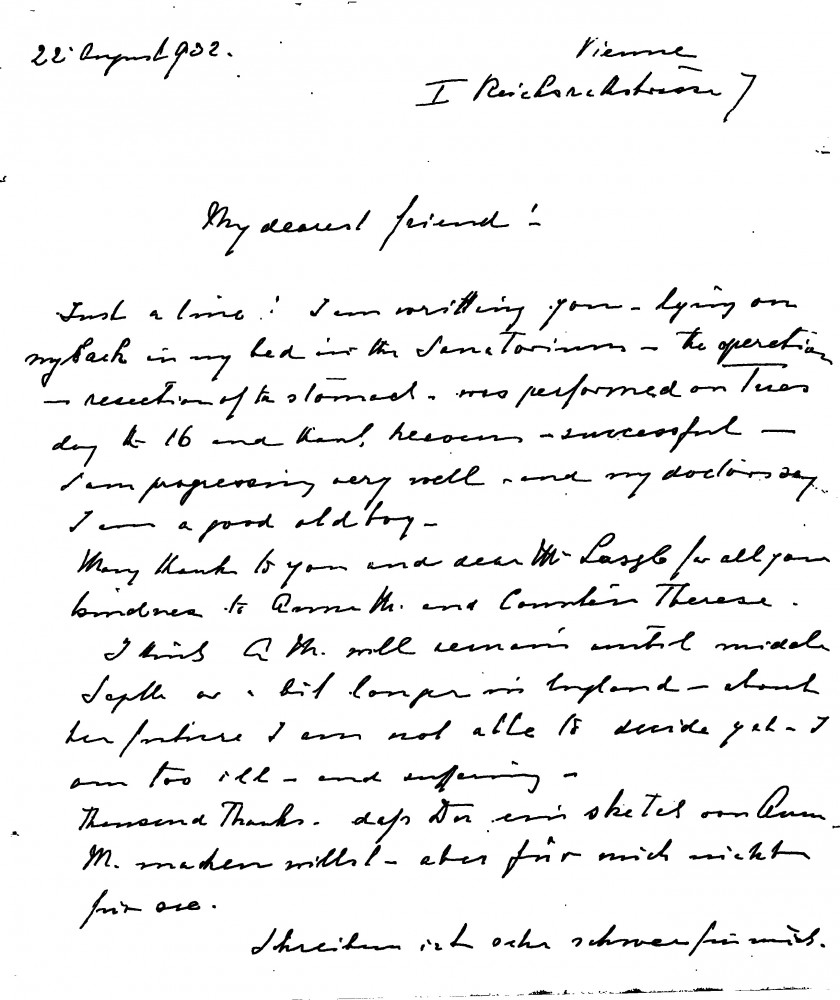 22 August 932.
Vienne
I Reichsratsstrasse 7
My dearest friend! –
Just a line! I am writting you – lying on
my back in my bed in the Sanatorium – the operation
– resection of the stomach – was performed on Tues
day the 16 and thank heavens – successful –
I am progressing very well – and my doctors say
I am a good old boy –
Many thanks to you and dear Mrs László for all your
kindness to Anne M. and Countess Therese.
I think A M. will remain until middle
Septbr or a bit longer in England – about
her future I am not able to decide yet – I
am too ill – and suffering –
Thousend Thanks – dass Du ein sketch von Anne
M. machen willst – aber für mich nicht
für sie.
Schreiben ist sehr schwer für mich.